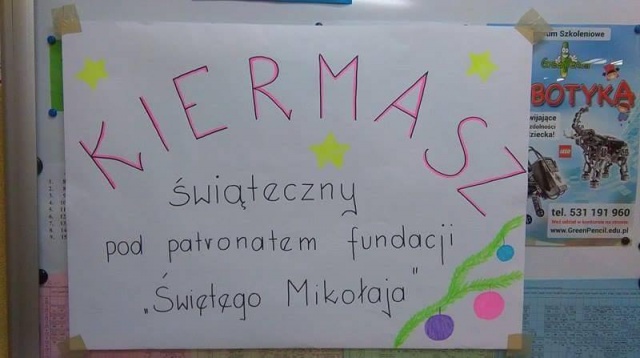 KIERMASZ
świąteczny
pod patronatem fundacji
„Świętego Mikołaja"
um Szkoleniowe
BOTYKA
wijające
dolności
ziecka!
LEGO
tel. 531 191 960
www.GreenPencil.edu.pl